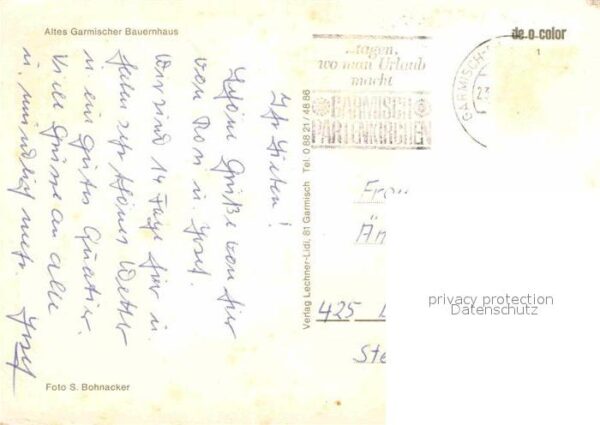 Altes Garmischer Bauernhaus
Ihr Lieben!
Schöne Grüße von hier
von Rosi u. Josef.
Wir sind 14 Tage hier u.
haben sehr schönes Wetter
u. ein gutes Quatier.
Viele Grüsse an alle
u. mündlich mehr. Josef
Foto S. Bohnacker
Verlag Lechner-Lidi, 81 Garmisch Tel. 0 88 21 / 48 86
...tagen,
wo man Urlaub
macht
GARMISCH
PARTENKIRCHEN
GARMISCH-
de-o-color
1
Frau
Än
425
Ste
privacy protection
Datenschutz